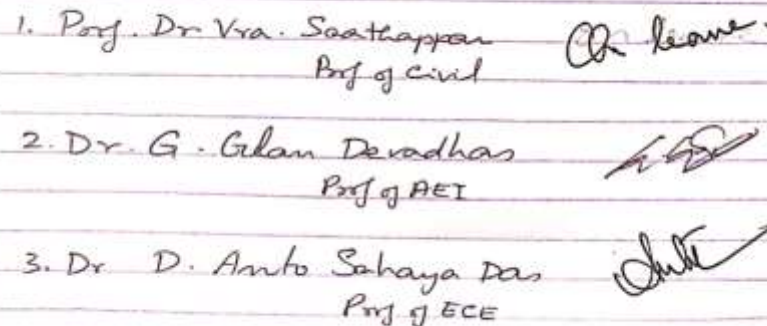 1. Prof. Dr Vra. Saathappan On leave.
Prof of Civil
2. Dr. G. Glan Devadhas
Prof of AEI
3. Dr D. Anto Sahaya Das
Prof of ECE